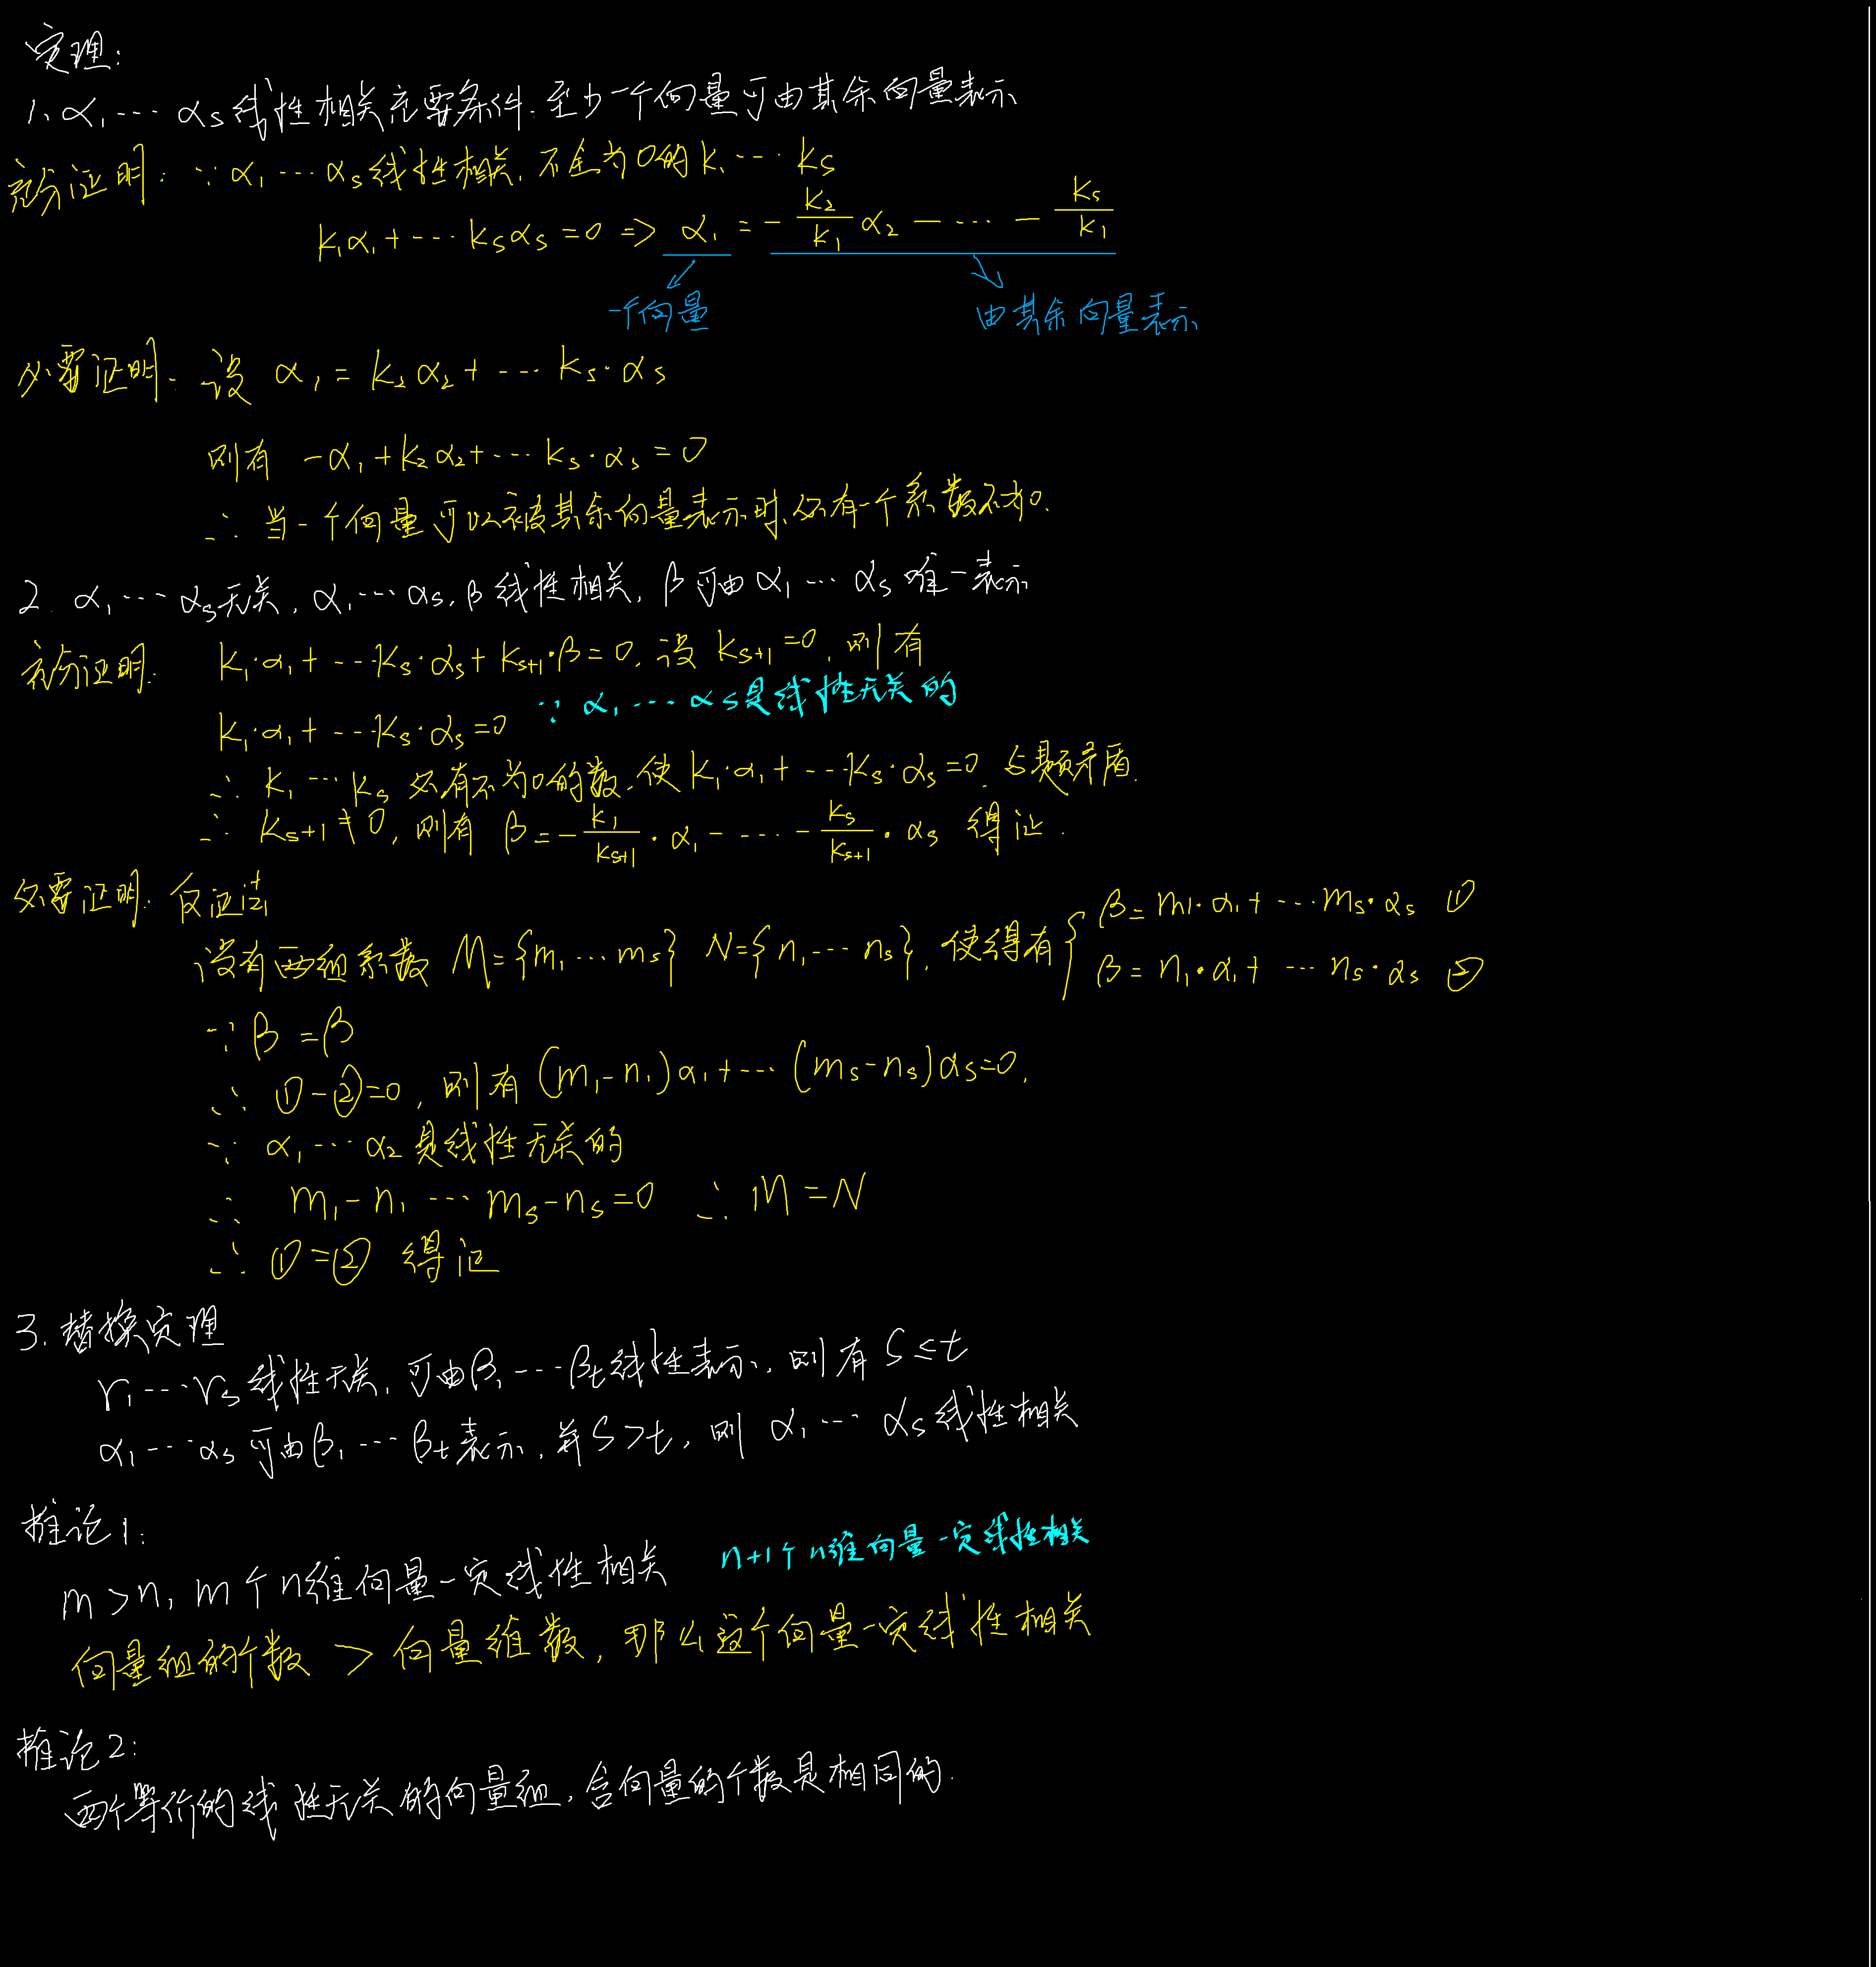 定理:
1. α₁ … αₛ 线性相关充要条件. 至少一个向量可由其余向量表示
充分证明: ∵ α₁ … αₛ 线性相关, 不全为0的 k₁ … kₛ
k₁α₁ + … kₛαₛ = 0 => α₁ = - k₂/k₁ α₂ - … - kₛ/k₁
一个向量 由其余向量表示
必要证明: 设 α₁ = k₂α₂ + … kₛ·αₛ
则有 -α₁ + k₂α₂ + … kₛ·αₛ = 0
∴ 当一个向量可以被其余向量表示时, 必有一个系数不为0.
2. α₁ … αₛ无关, α₁ … αₛ, β 线性相关, β可由 α₁ … αₛ 唯一表示
充分证明: k₁·α₁ + … kₛ·αₛ + kₛ₊₁·β = 0, 设 kₛ₊₁ = 0, 则有
k₁·α₁ + … kₛ·αₛ = 0 ∵ α₁ … αₛ是线性无关的
∴ k₁ … kₛ 必有不为0的数, 使 k₁·α₁ + … kₛ·αₛ = 0, 与题矛盾.
∴ kₛ₊₁ ≠ 0, 则有 β = - k₁/kₛ₊₁ · α₁ - … - kₛ/kₛ₊₁ · αₛ 得证.
必要证明: 反证法
设有两组系数 M = {m₁ … mₛ} N = {n₁ … nₛ}, 使得有 { β = m₁·α₁ + … mₛ·αₛ ①
β = n₁·α₁ + … nₛ·αₛ ②
∵ β = β
∴ ① - ② = 0, 则有 (m₁ - n₁)α₁ + … (mₛ - nₛ)αₛ = 0,
∵ α₁ … α₂ 是线性无关的
∴ m₁ - n₁ … mₛ - nₛ = 0 ∴ M = N
∴ ① = ② 得证
3. 替换定理
r₁ … rₛ 线性无关, 可由β₁ … βₜ线性表示, 则有 s ≤ t
α₁ … αₛ 可由β₁ … βₜ表示, 并 s > t, 则 α₁ … αₛ 线性相关
推论1:
m > n, m个n维向量一定线性相关 n+1个n维向量一定线性相关
向量组的个数 > 向量维数, 那么这个向量一定线性相关
推论2:
两个等价的线性无关的向量组, 含向量的个数是相同的.